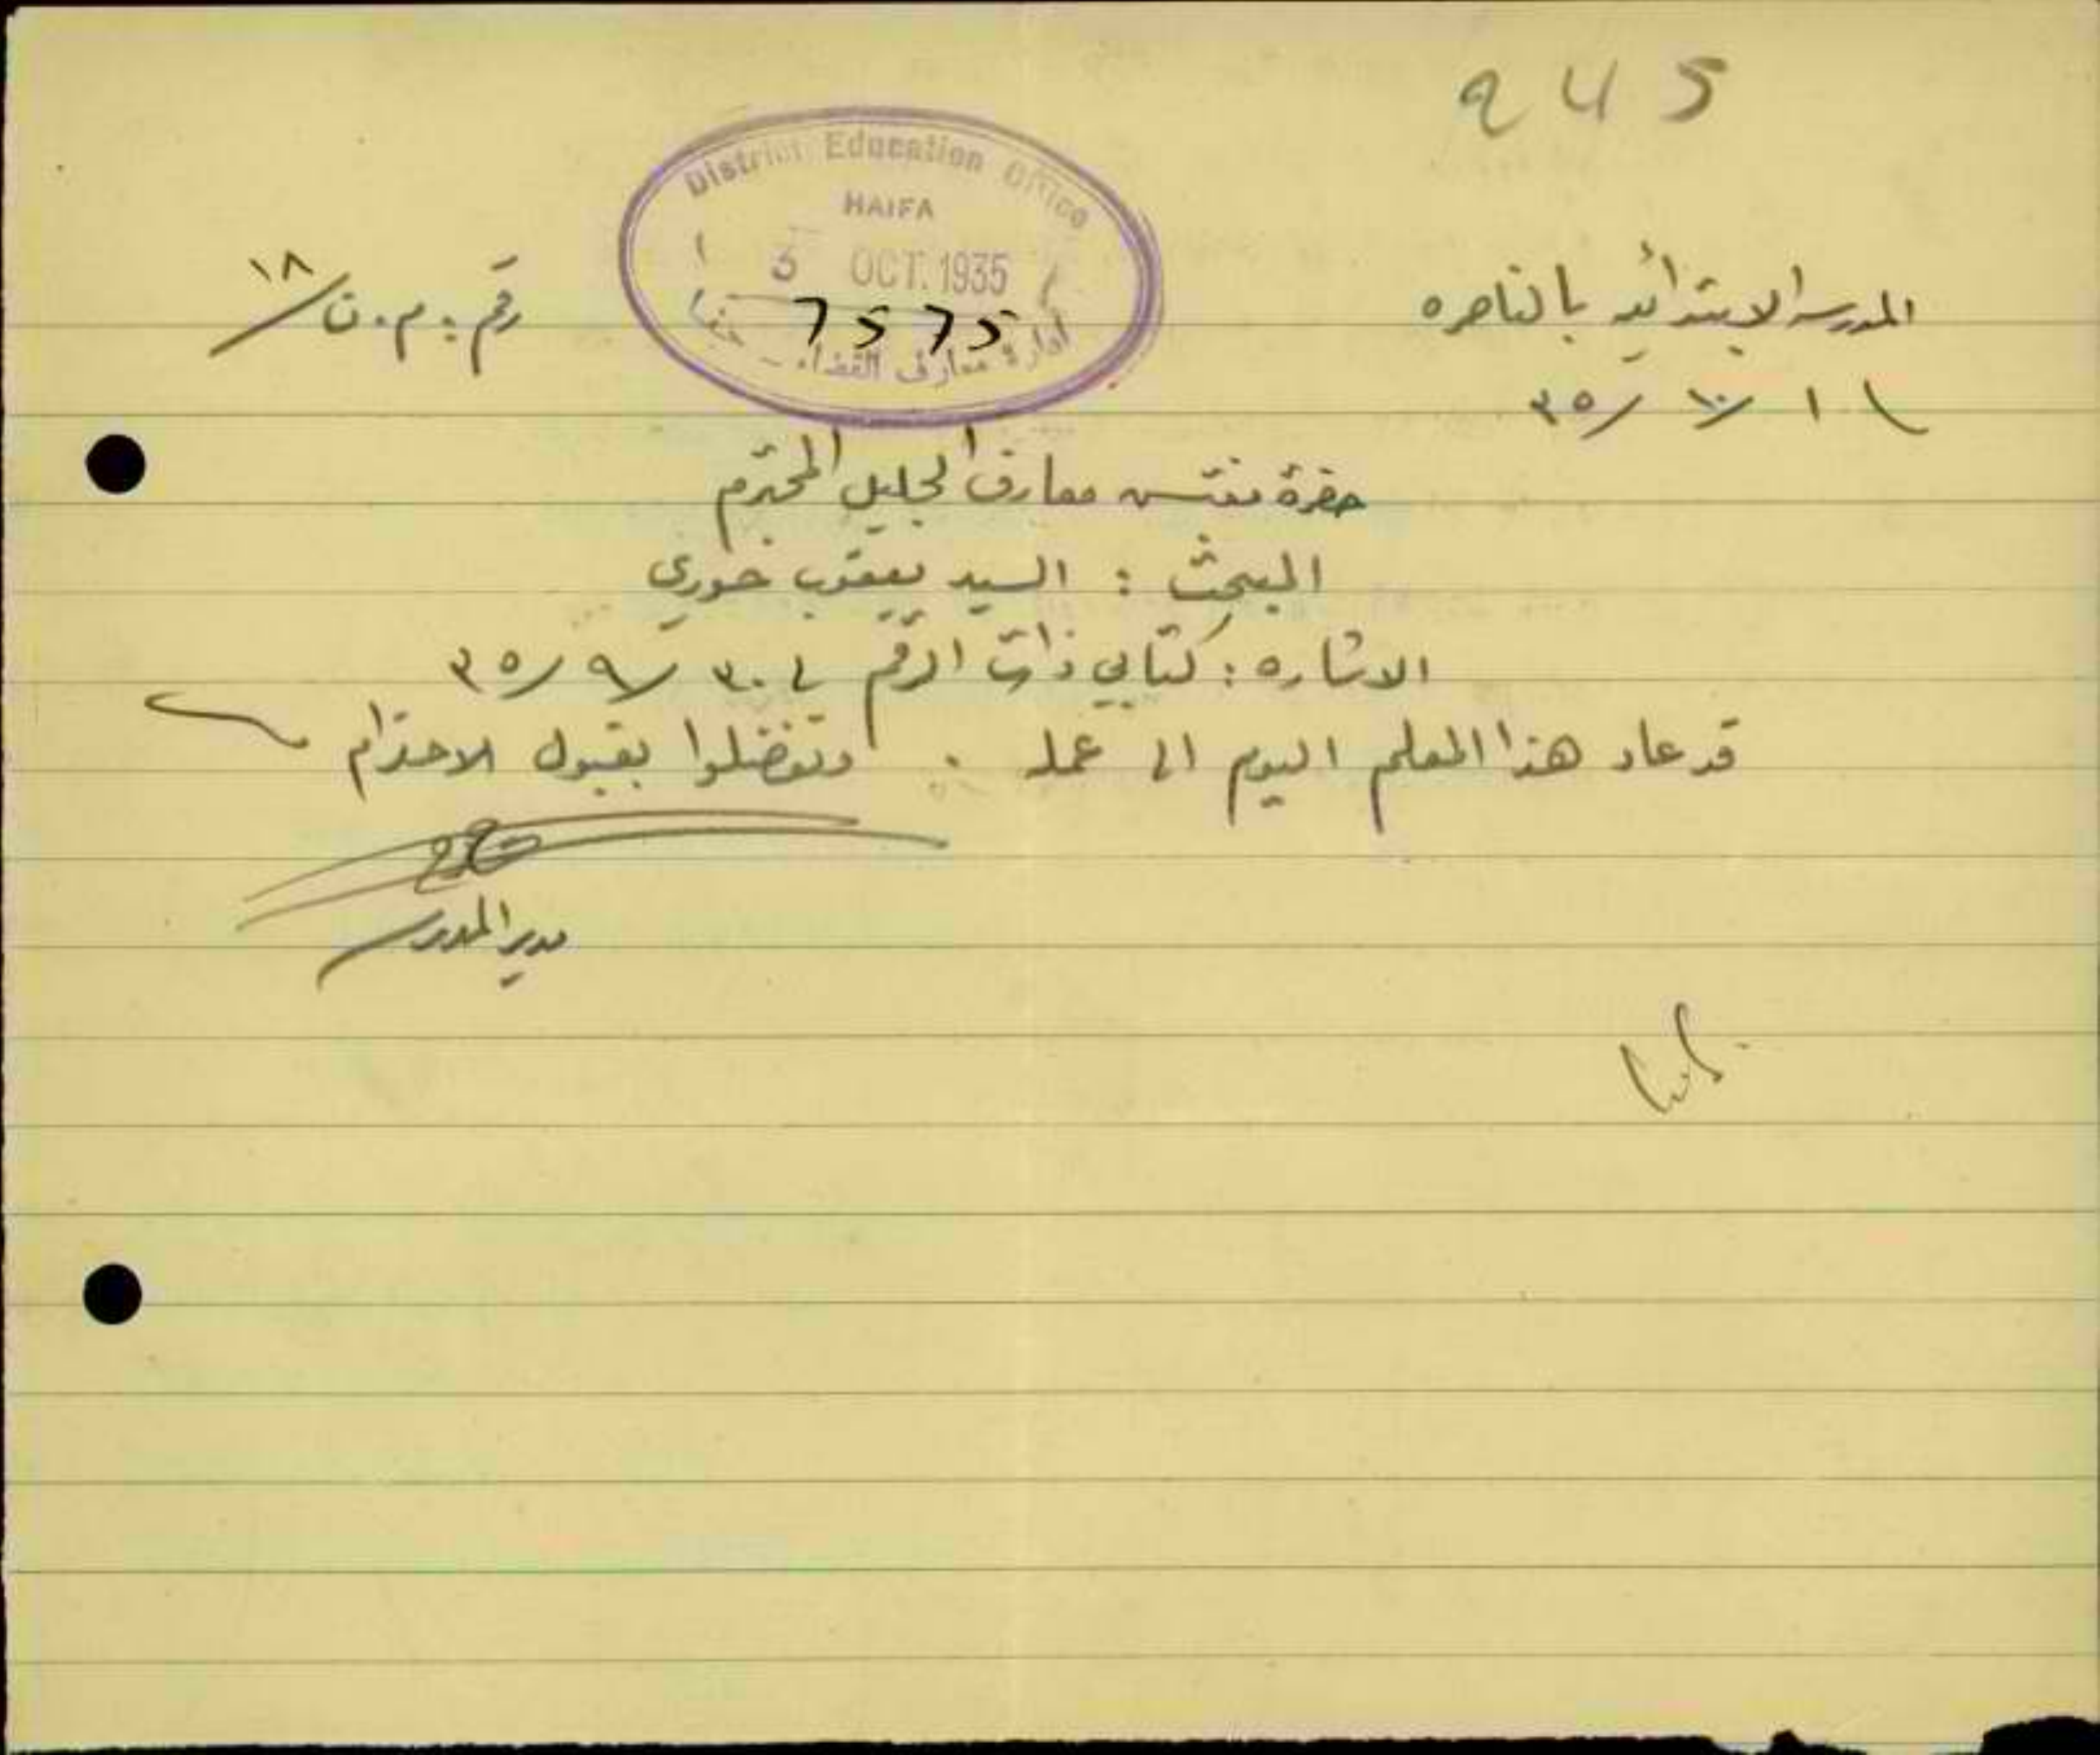 945
District Education Office
HAIFA
3 OCT. 1935
7575
ادارة معارف القضاء - حيفا
رقم: م.ن/١٨
المدرسة الابتدائيه بالناصره
١/١٠/٣٥
حضرة مفتش معارف الجليل المحترم
المبحث : السيد يعقوب خوري
الاشاره : كتابي ذات الرقم في ٣٠/٩/٣٥
قد عاد هذا المعلم اليوم الى عمله . وتفضلوا بقبول الاحترام
مدير المدرسة